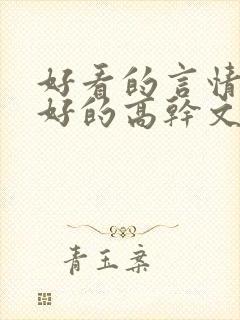 好看的言情
好的高幹文
青玉案